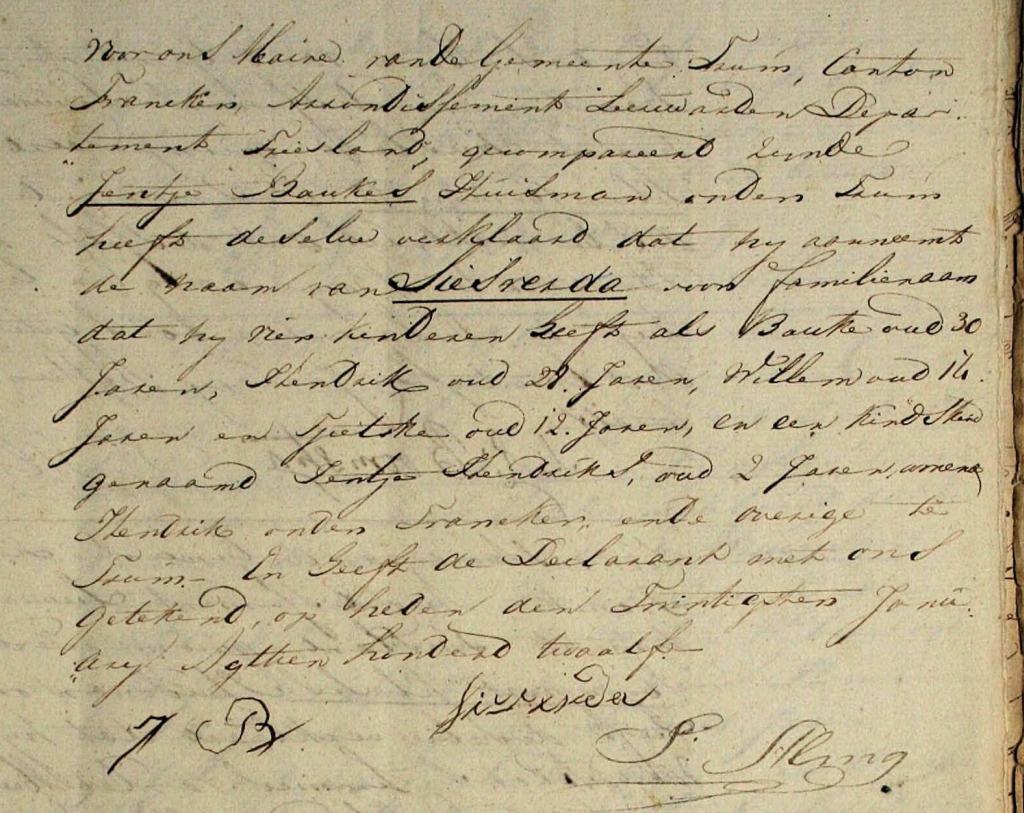 Voor ons Maire van de Gemeente Tzum, Canton
Franeker, Arrondissement Leeuwarden Depar„
„tement Friesland, gecompareerd zijnde
Jentje Baukes Huisman onder Tzum
heeft deselve verklaard dat hy aanneemt
de naam van Siesverda voor familienaam
dat hy vier kinderen heeft als Bauke oud 30
Jaren, Hendrik oud 21. Jaren, Willem oud 16.
Jaren en Tjietske oud 12. Jaren, en een kindskind
genaamd Jentje Hendriks, oud 2 Jaren, wonende
Hendrik onder Franeker, en de overige te
Tzum. En heeft de Declarant met ons
getekend, op heden den Twintigsten Janu„
„ary Agttien honderd twaalf
J B Siesverda
S.